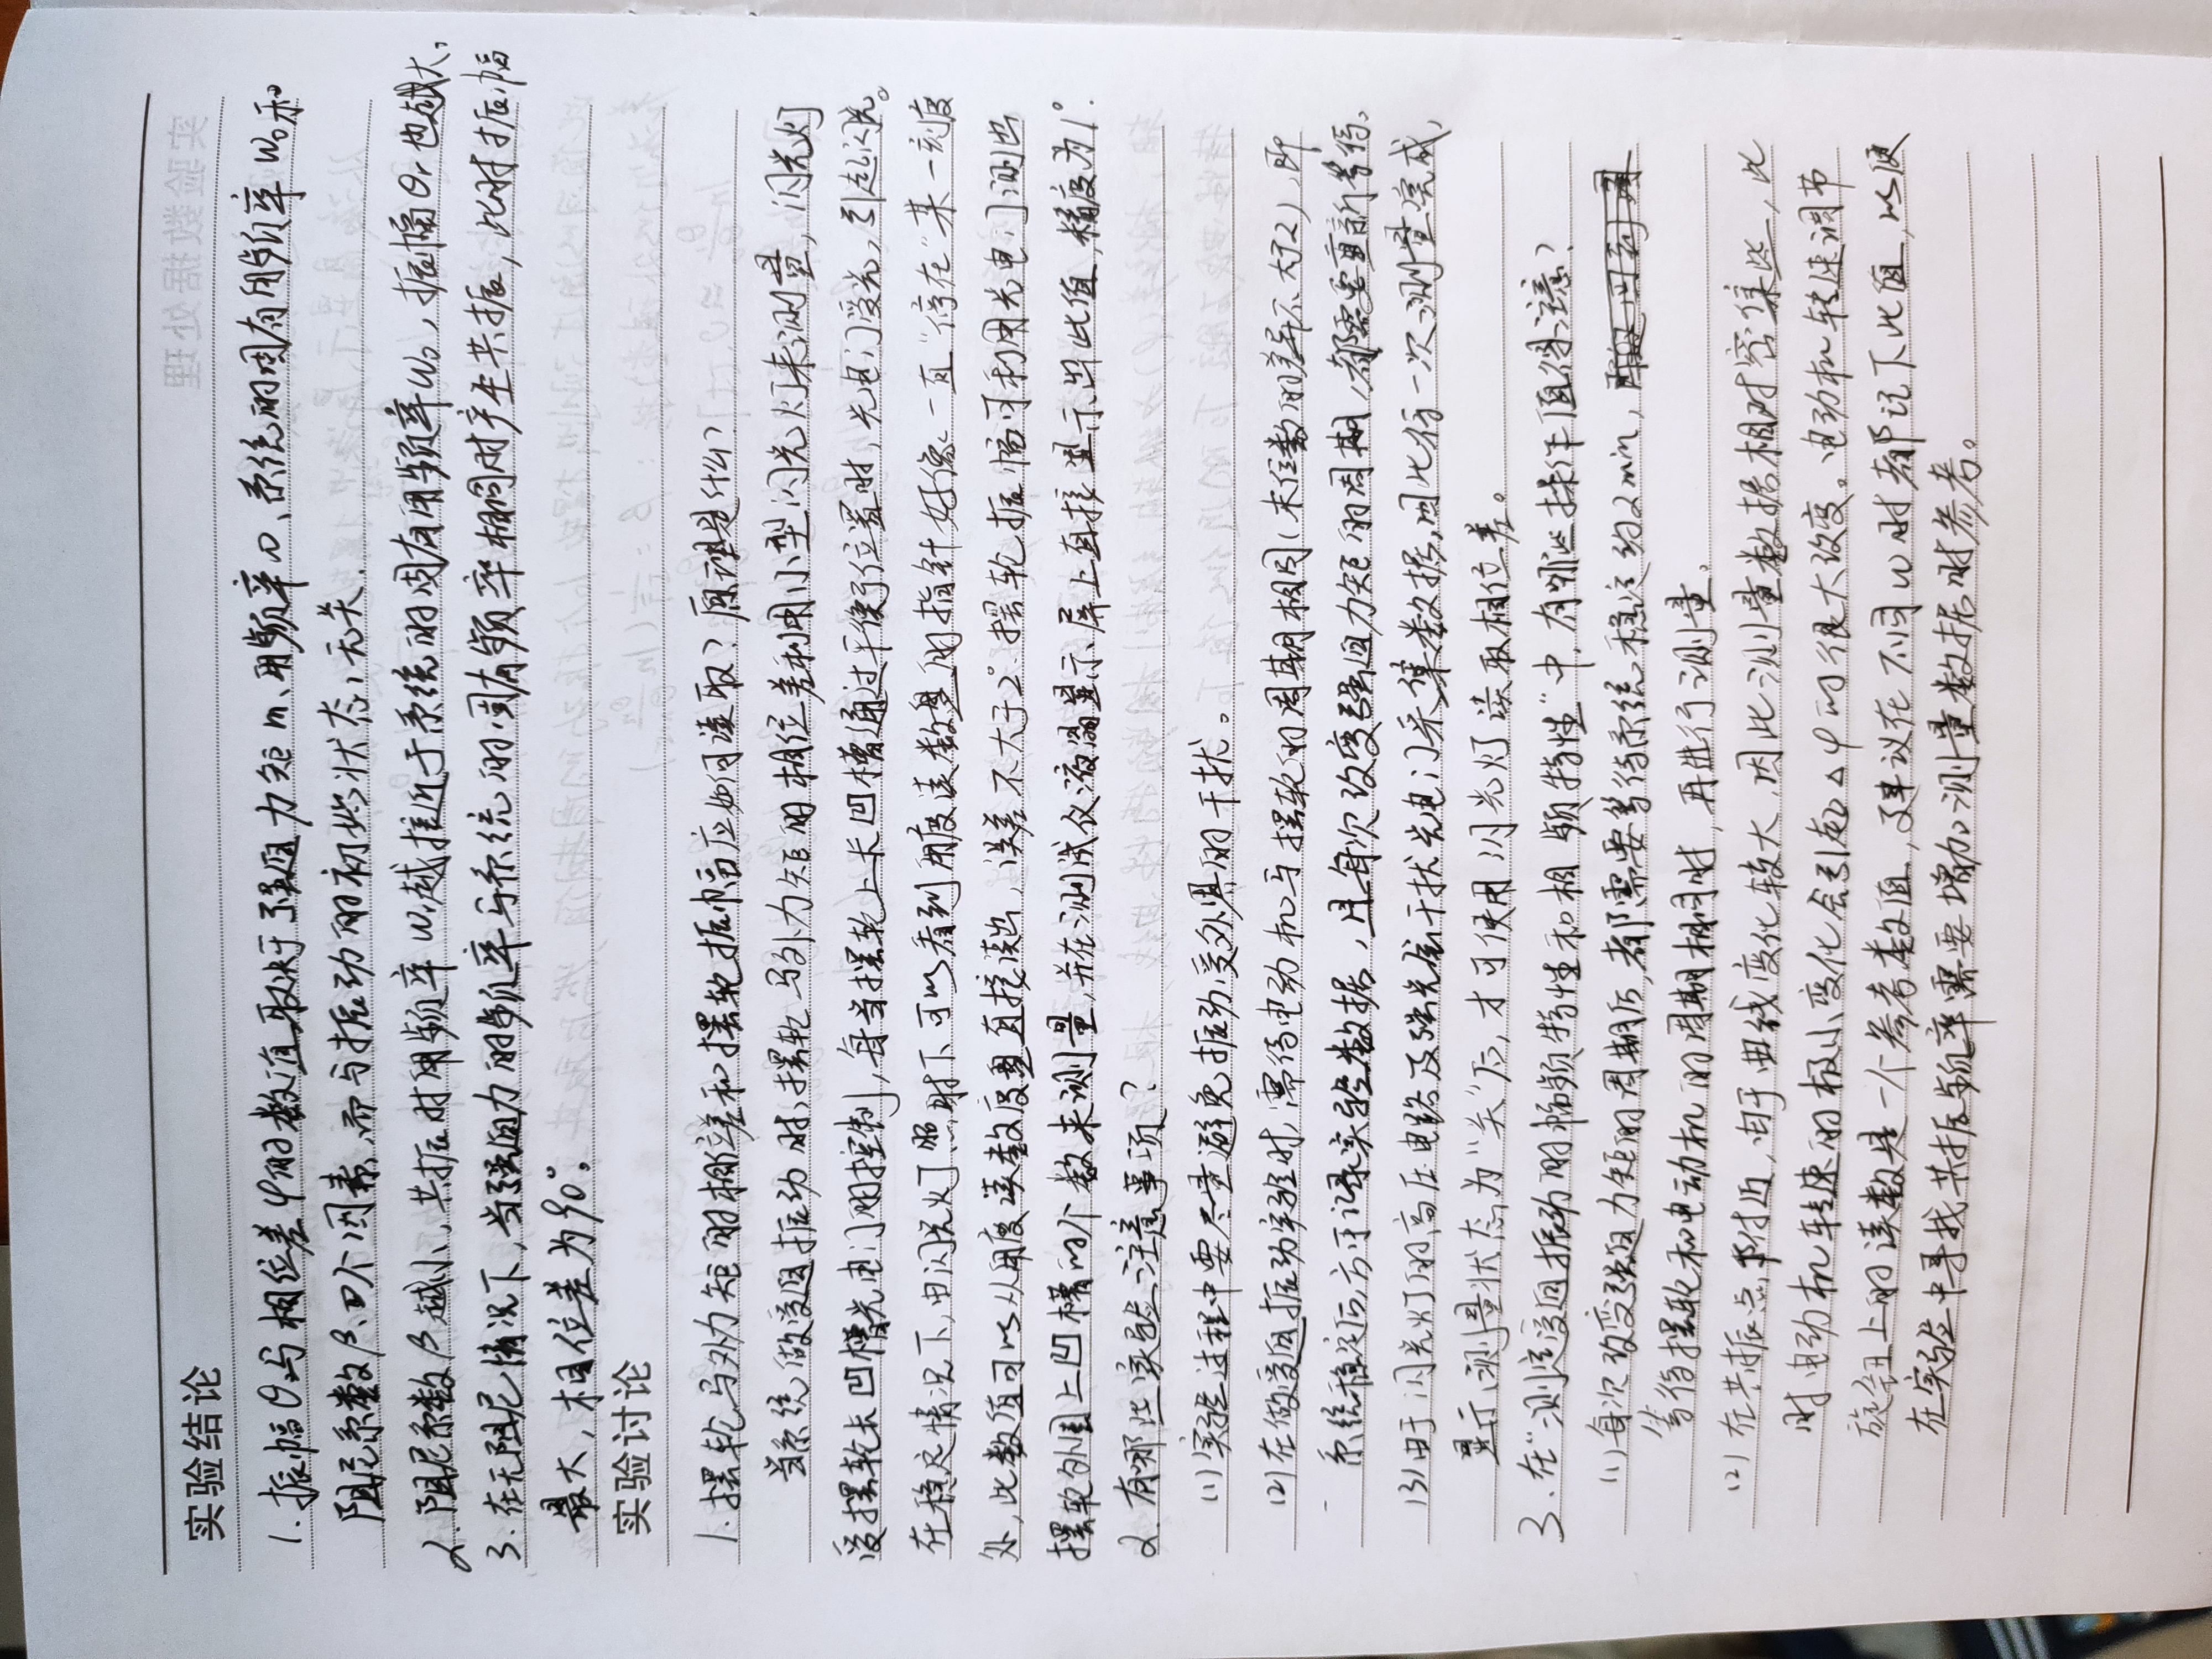 实验结论
1.振幅θ与相位差φ的数值取决于强迫力矩m、角频率ω、系统的固有角频率ω₀和
阻尼系数β四个因素,而与振动的初始状态无关.
2.阻尼系数β越小,共振时角频率ω越接近于系统的固有角频率ω₀,振幅θr也越大.
3.在无阻尼情况下,当强迫力的频率与系统的固有频率相同时产生共振,此时振幅
最大,相位差为90°。
实验讨论
1.摆轮与外力矩的相位差和摆轮振幅应如何读取?原理是什么?
当系统做受迫振动时,摆轮与外力矩的相位差利用小型闪光灯来测量,闪光灯
受摆轮长凹槽光电门的控制,每当摆轮上长凹槽通过平衡位置时,光电门受光,引起闪光。
在稳定情况下,由闪光灯照射下可以看到角度读数盘的指针好像一直"停在"某一刻度
处,此数值可以从角度读数度盘直接读出,误差不大于2°.摆轮振幅可利用光电门测出
摆轮外围上凹槽的个数来测量,并在测试仪液晶显示屏上直接显示出此值,精度为1°.
2.有哪些实验注意事项?
(1)实验过程中要尽量避免振动,受外界的干扰。
(2)在做受迫振动实验时,需待电动机与摆轮的周期相同(末位数的差异不大于2),即
系统稳定后,方可记录实验数据,且每次改变强迫力矩的周期,都需要重新等待.
(3)由于闪光灯的高压电路及强光会干扰光电门采集数据,因此待一次测量完成,
显示测量状态为"关"后,才可使用闪光灯读取相位差。
3.在"测定受迫振动的幅频特性和相频特性"中,有哪些操作值得注意?
(1)每次改变强迫力矩的周期后,都需要等待系统稳定约2min,
等待摆轮和电动机的周期相同时,再进行测量.
(2)在共振点附近,由于曲线变化较大,因此测量数据相对密集些,此
时电动机转速的极小变化会引起△φ的很大改变。电动机转速调节
旋钮上的读数是一个参考数值,建议在不同ω时都记下此值,以便
在实验中寻找共振频率需要增加测量数据时参考。